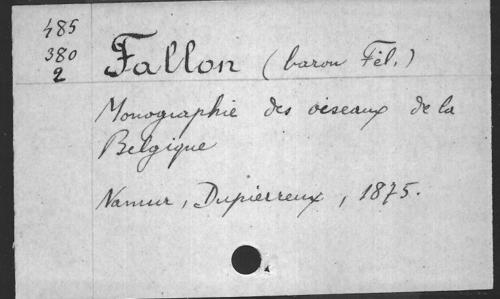 485
380
2
Fallon (baron Fél.)
Monographie des oiseaux de la
Belgique
Namur, Dupierreux, 1875.